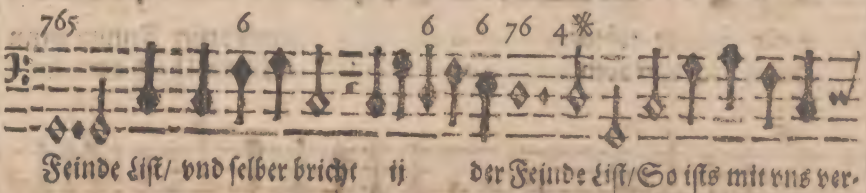 765 6 6 6 76 4*
Feinde List/ vnd selber bricht ij der Feinde List/ So ists mit vns ver-